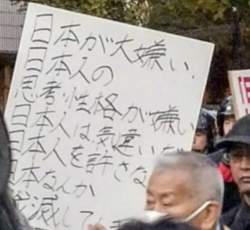 日本が大嫌い
日本人の
思考 性格が嫌い
日本人は気違いだ
日本人を許さな
日本なんか
滅して